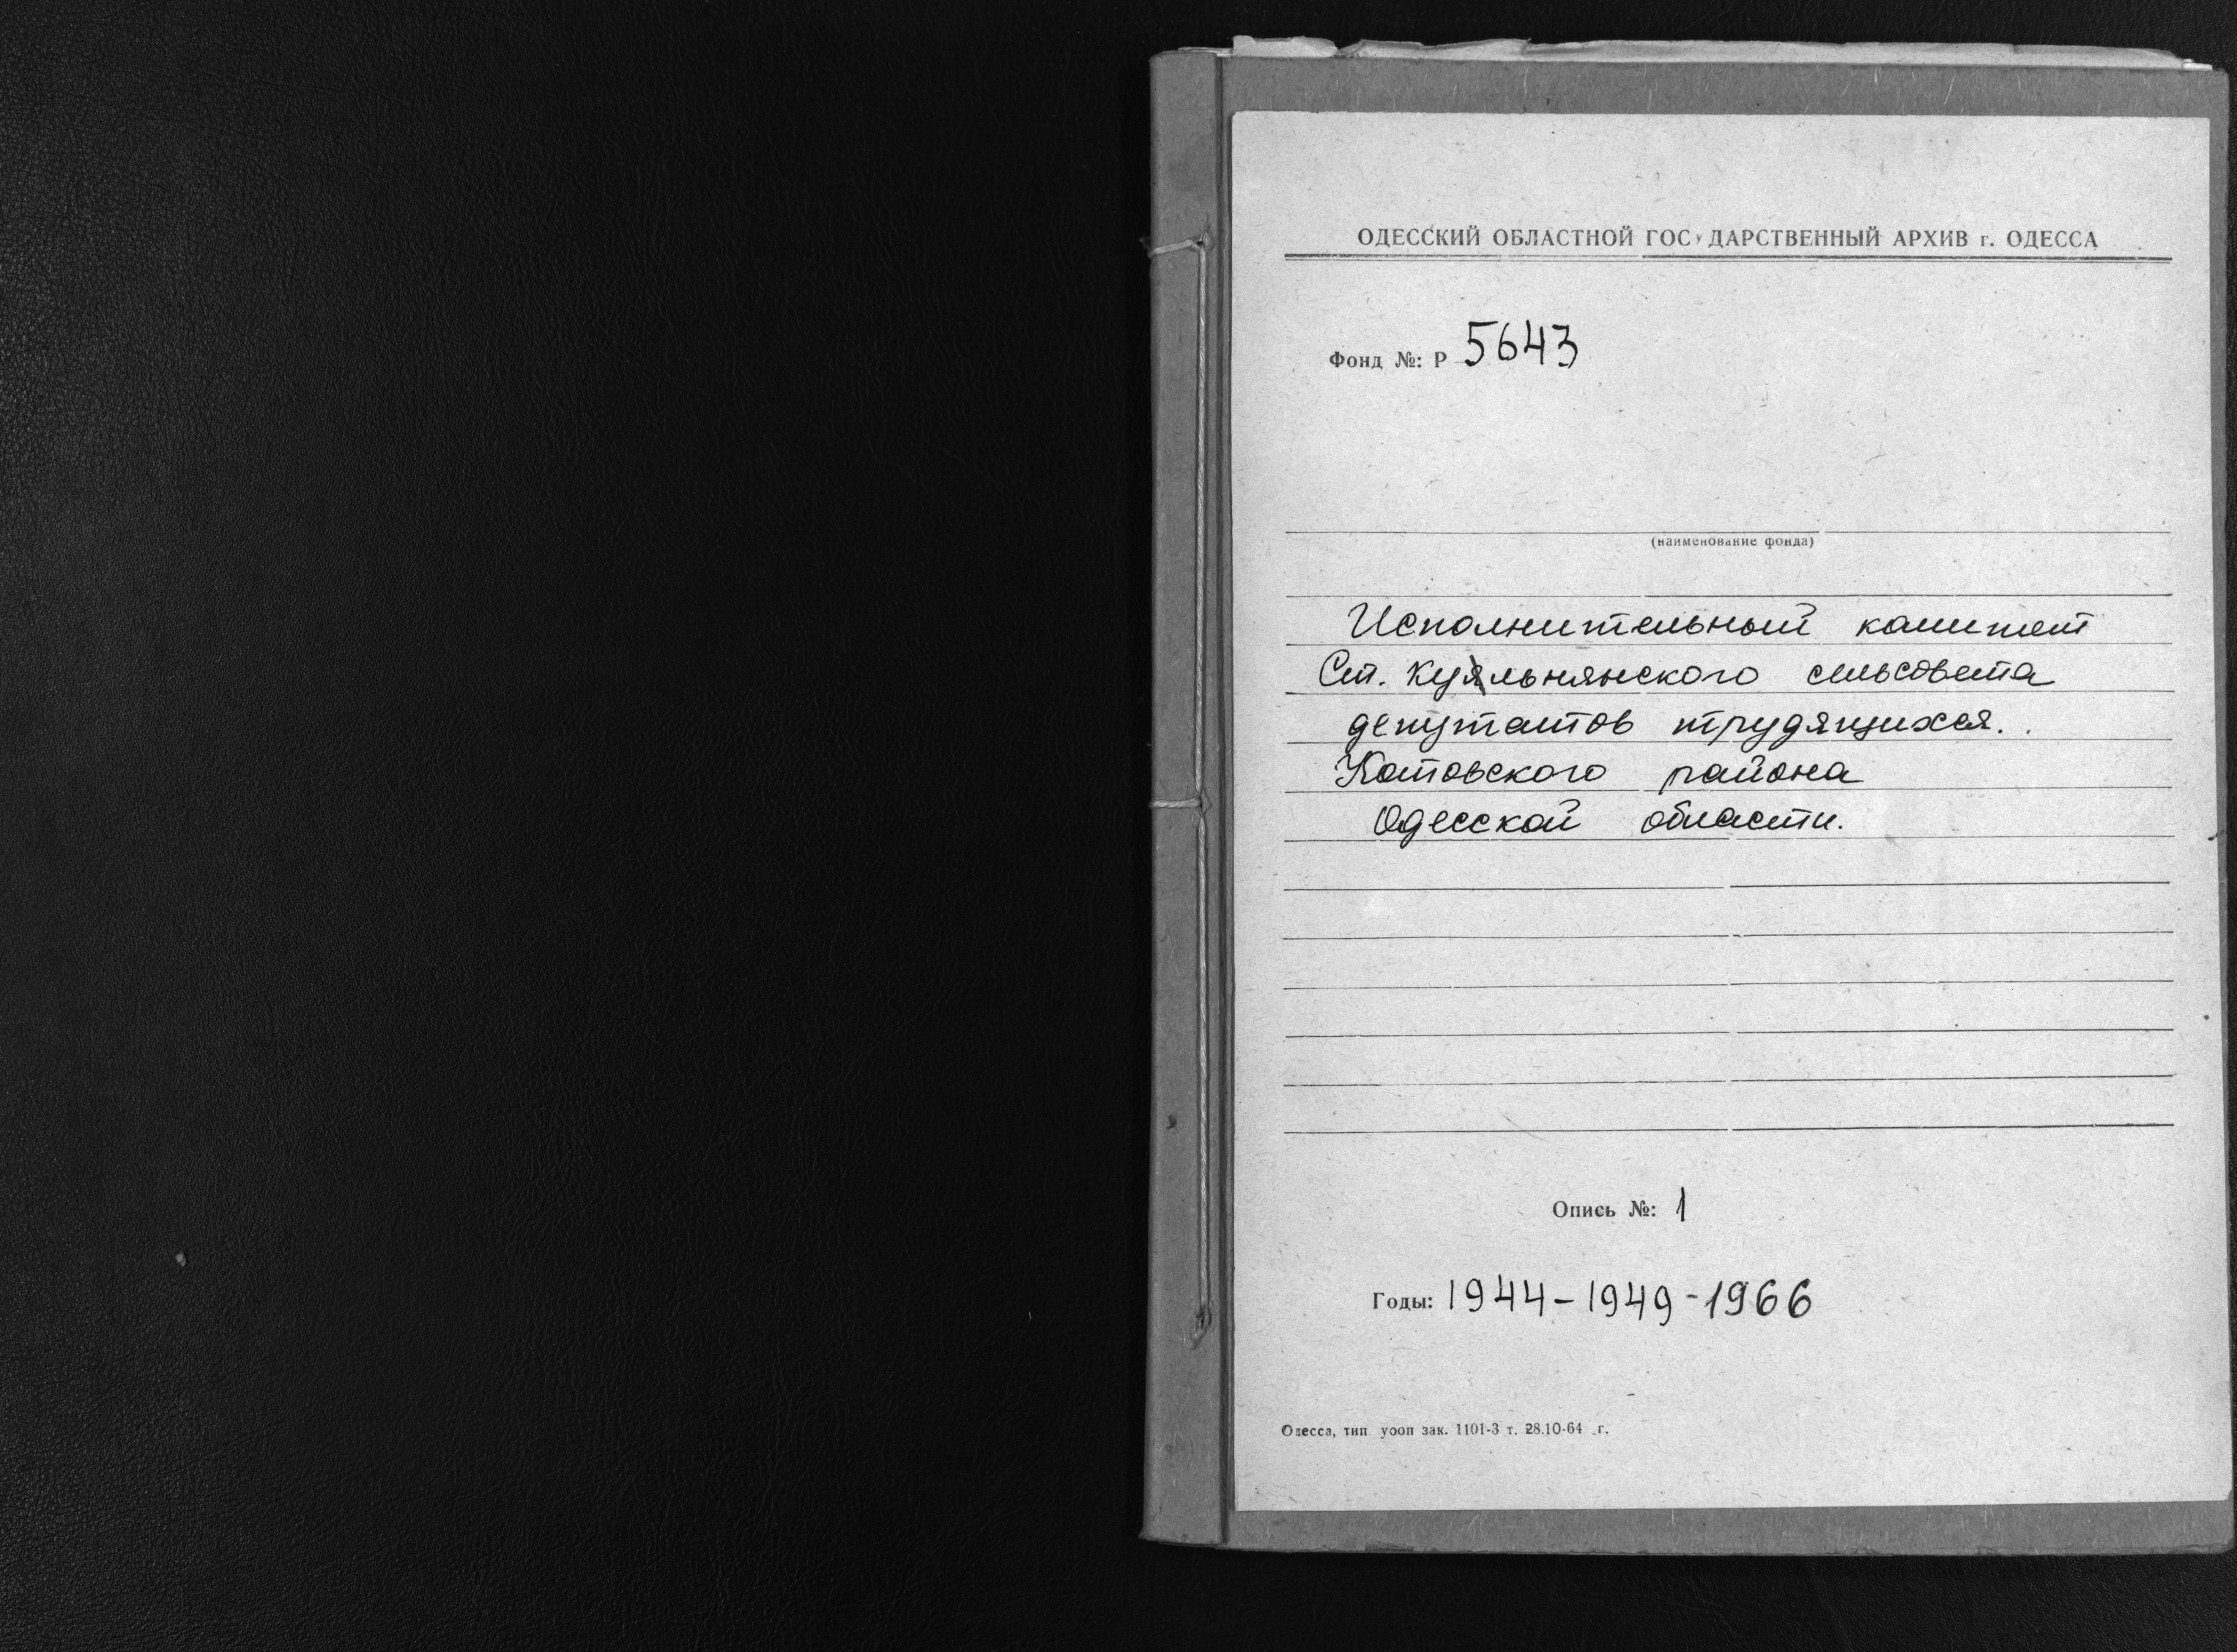 ОДЕССКИЙ ОБЛАСТНОЙ ГОСУДАРСТВЕННЫЙ АРХИВ г. ОДЕССА
Фонд №: Р 5643
(наименование фонда)
Исполнительный комитет
Ст. Куяльнянского сельсовета
депутатов трудящихся.
Котовского района
Одесской области.
Опись №: 1
Годы: 1944-1949-1966
Одесса, тип. уооп зак. 1101-3 т. 28.10-64 г.